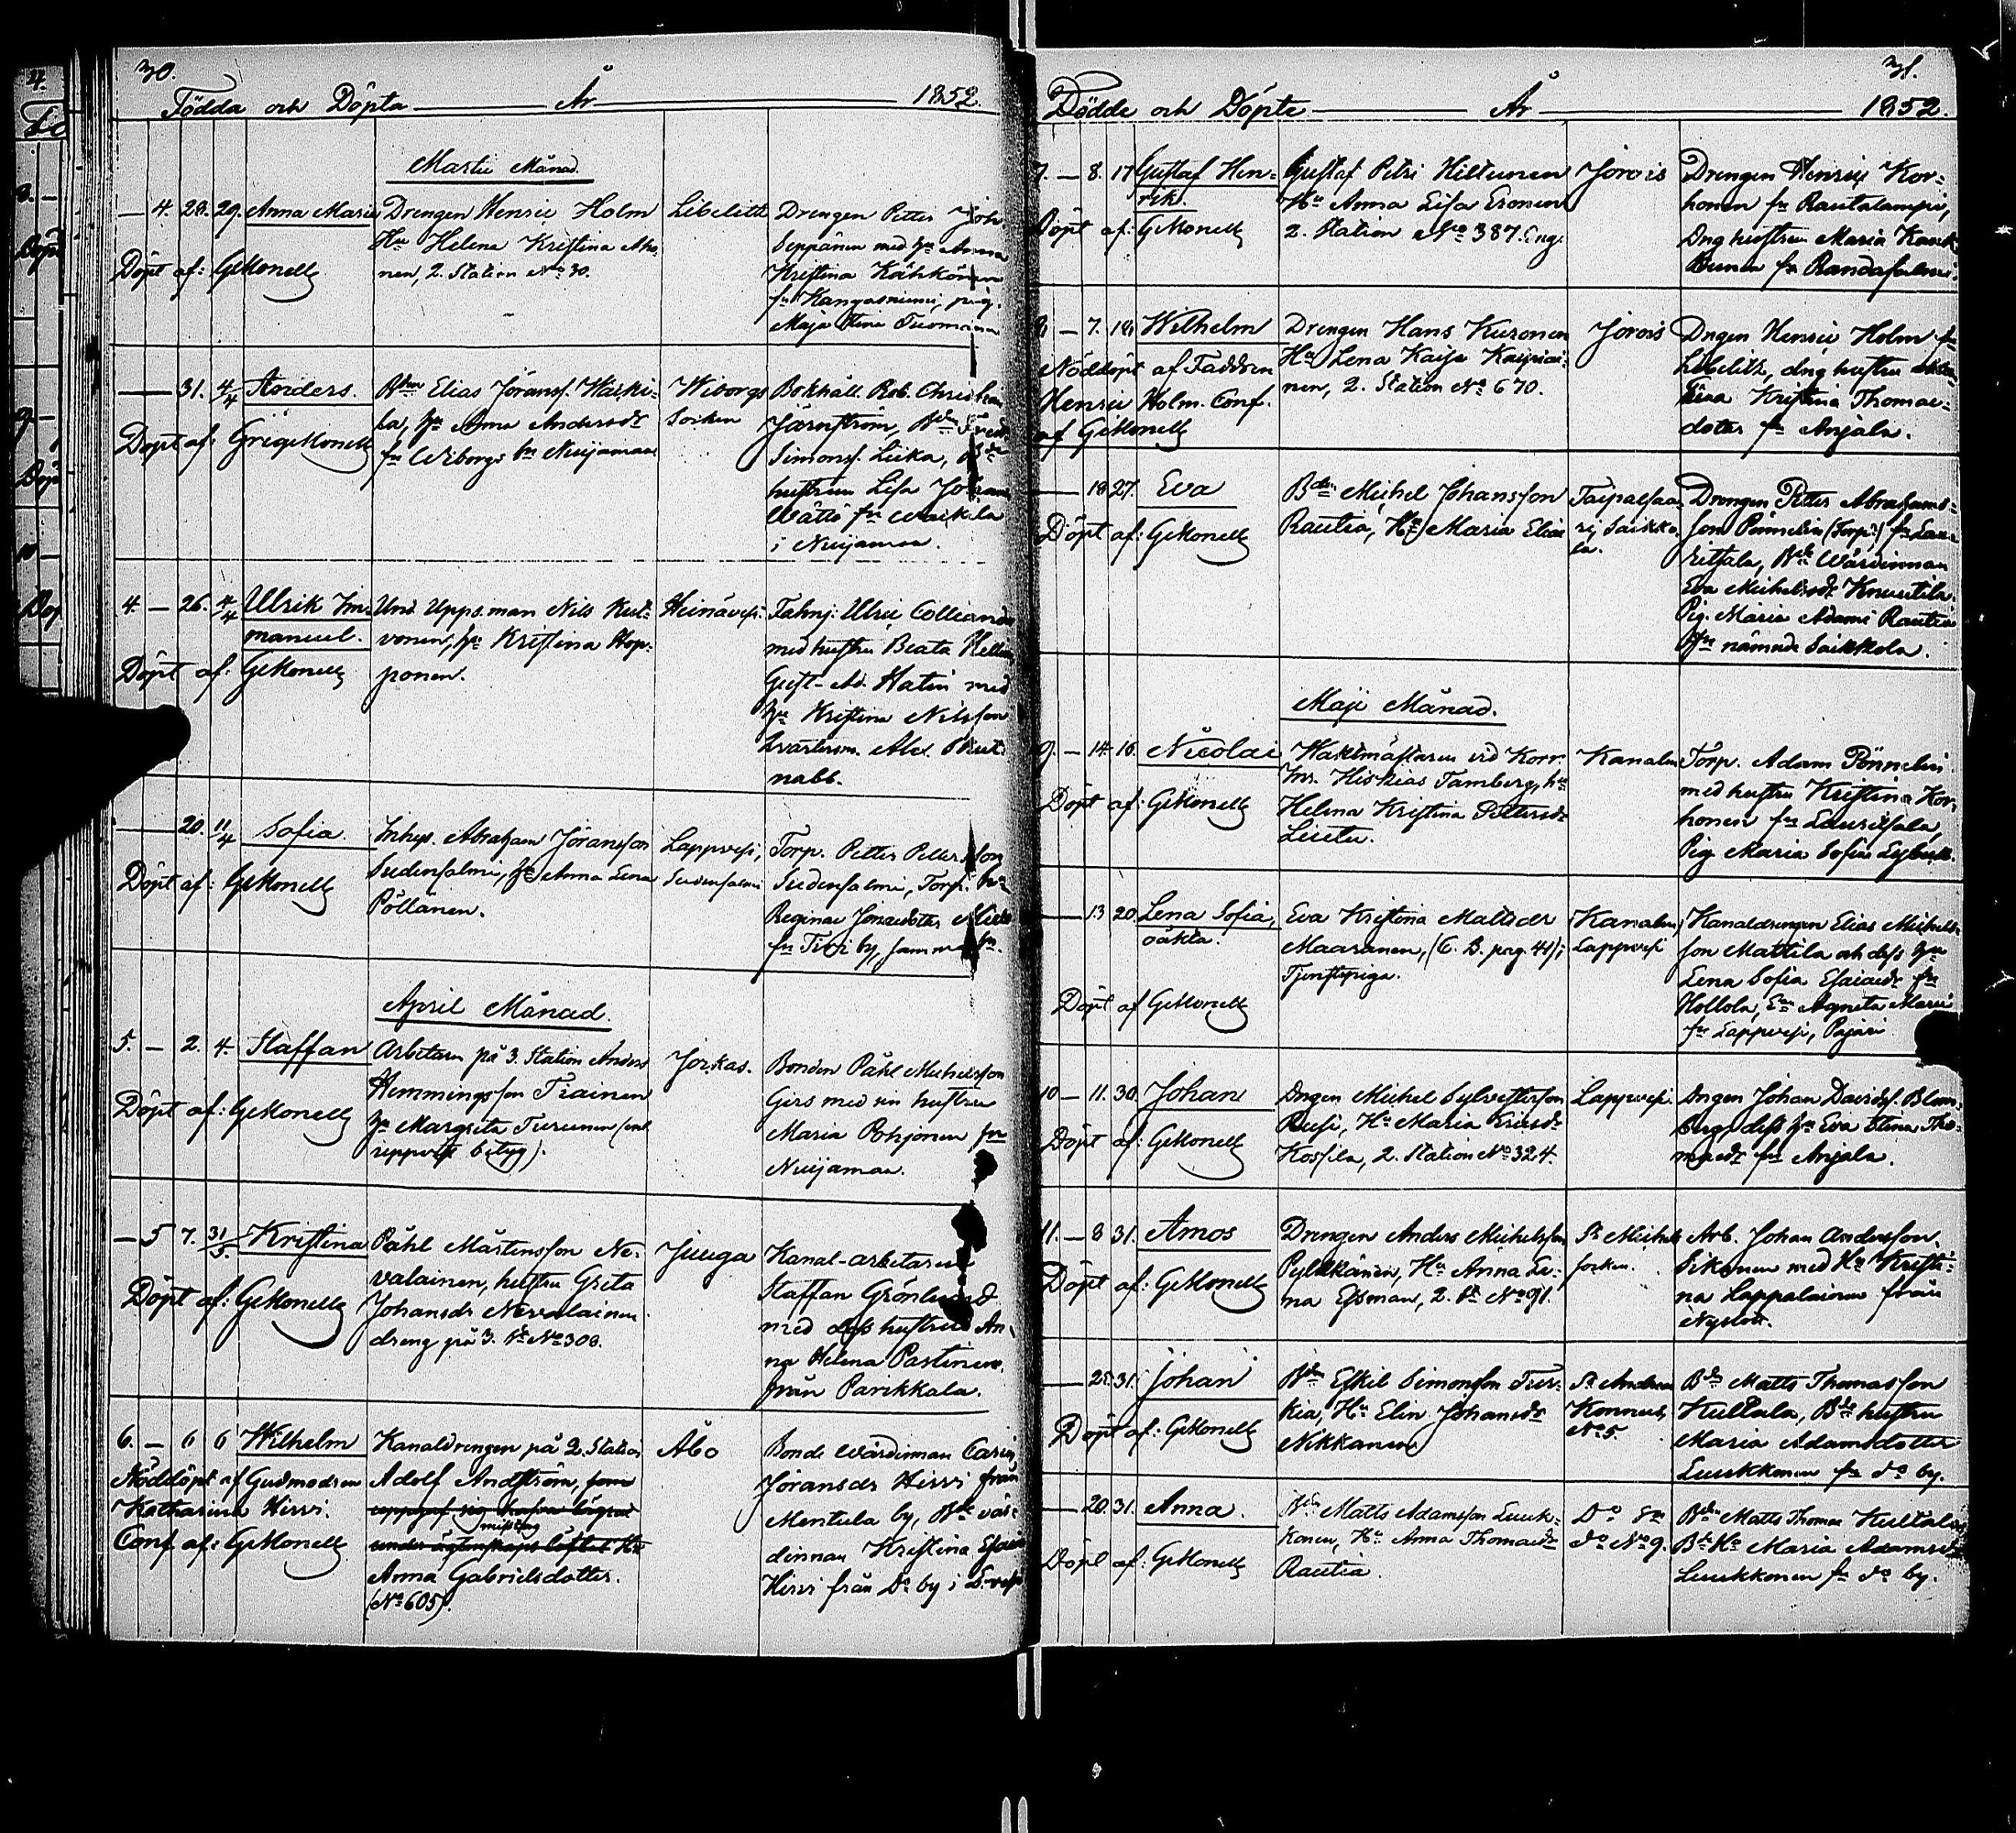 30.
Födda och Döpta År 1852.
Martii Månad.
4. 28. 29. Anna Maria
Drengen Henric Holm
Hu Helena Kristina
nen, 2. Station No 30.
Libelitz
Drengen Petter Joh
Seppänen med hu Anna
Kristina Kähkönen
fn Kangasniemi, pig.
Maja Stina Tuomainen
Döpt af: GMonell
31. 4/4 Anders.
Bdn Elias Göransf. Waiki-
la, hu Anna Andersdr
fn Wiborgs sn Nuijamaa
Wiborgs
Socken
Bokhåll. Rob. Christian
Järnström, Bdn Fred
Simonsf. Liika,
hustrun Lisa Johans
Wättö fn Waikila
i Nuijamaa.
Döpt af:
4. — 26. 4/4 Ulrik Im-
manuel.
Und. Upps.man Nils Kut-
vonen, hu Kristina Hop-
ponen.
Heinävesi.
Fahnj. Ulric Colliand
med hustru Beata
Gust. Ad. Hatin med
hu Kristina Nilsson
nabb.
Döpt af: GMonell
20. 11/4 Sofia.
Inhys. Abraham Göransson
Sudensalmi, hu Anna Lena
Pöllänen.
Lappvesi,
Sudensalmi
Torp. Petter Pettersson
Sudensalmi, Torp. hu
Regina Jonaedotter
fn by, samma sn.
Döpt af: GMonell
April Månad.
5. — 2. 4. Staffan
Arbetaren på 3. Station Anders
Hemmingsson Tiainen
hu Margreta Turunen (enl
betyg).
Jorkas.
Bonden Påhl Michelsson
Girs med sin hustru
Maria Pohjonen fn
Nuijamaa.
Döpt af: GMonell
— 5 7. 31/5. Kristina
Påhl Mårtensson Ne-
valainen, hustru Greta
Johansdr Nevalainen
dreng på 3. St No 308.
Juuga
Kanal-arbetaren
Staffan Grönlund
med dess hustru An-
na Helena Partinen
från Parikkala.
Döpt af: GMonell
6. — 6 6 Wilhelm
Nöddöpt af Gudmodren
Katharina Hirvi.
Conf. af: GMonell
Kanaldrengen på 2. Station
Adolf Andström, som
uppgaf sig hafva lägrat
misstag
under ägtenskaps löftet Hu
Anna Gabrielsdotter.
(No 605).
Åbo
Bonde Wärdinnan Carin
Göransdr Hirvi från
Mentula by, Bde vär-
dinnan Kristina Esaiae
Hirvi från Do by i
31.
Födde och Döpte År 1852.
7. — 8. 17 Gustaf Hen-
rik.
Gustaf Petri Hiltunen
Hu Anna Lisa Eronen
2. Station No 387.
Jorois
Drengen Henric Kor-
honen fn Rautalampi,
Dng hustrun Maria
fn Randasalmi.
Döpt af: GMonell
8 — 7. 18 Wilhelm
Nöddöpt af Faddren
Henric Holm. Conf.
af GMonell
Drengen Hans Kuronen
Hu Lena Kaisa Kaipiai-
nen, 2. Station No 670.
Jorois
Dngen Henric Holm fn
Libelitz, dng hustru
Stina Kristina Thomae-
dotter fn Anjala.
18 27. Eva
Bden Michel Johansson
Rautia, Hu Maria Eliae
Taipalsaa-
ri, Saikko-
la.
Drengen Petter Abrahams-
son Pönnelin (Torp.) fn Lau-
ritsala, Bde Wärdinnan
Eva Michelsdr Knuutila.
Pig. Maria Adami Rautia
fn nämnde Saikkola.
Döpt af: GMonell
Maji Månad.
9. — 14 16. Nicolai
Waktmästaren vid Korr.
Inr. Hiskias Tamberg, hu
Helena Kristina Pettersdr
Liietu.
Kanalen
Torp. Adam Pönnelin
med hustru Kristina Kor-
honen fn Lauritsala,
Pig. Maria Sofia
Döpt af: GMonell
13 20 Lena Sofia,
oäkta.
Eva Kristina Mattsdr
Maaranen, (C. B. pag. 41);
Tjenstepiga.
Kanalen,
Lappvesi
Kanaldrengen Elias Michels-
son Mattila och dess hu
Lena Sofia Esaiaedr fn
Hollola, Agneta Maria
fn Lappvesi, Pajari
Döpt af GMonell
10 — 11. 30. Johan
Dngen Michel Sylvestersson
Ruusi, Hu Maria Ericsdr
Kossila, 2. Station No 324.
Lappvesi.
Dngen Johan Davidss. Blom-
berg, dess hu Eva Stina Tho-
maedr fn Anjala.
Döpt af: GMonell
11. — 8 31. Amos
Drengen Anders Michelsson
Pylkkänen, Hu Anna Le-
na Essman, 2. St No 91.
St Michels
socken.
Arb. Johan Andersson
Sikonen med Hu Kristi-
na Lappalainen från
Nyslott.
Döpt af: GMonell
25. 31. Johan
Bdn Eskil Simonsson Tur-
kia, Hu Elin Johansdr
Nikkanen
St Andreae
Konnunk
No 5.
Bdn Matts Thomasson
Kultala, Bde hustru
Maria Adamsdotter
Luukkonen fn do by.
Döpt af: GMonell
20. 31. Anna.
Bdn Matts Adamsson Luuk-
konen, Hu Anna Thomaedr
Rautia.
Do Sn
do No 9.
Bdn Matts Thomae Kultala
Bde Hu Maria Adamsdr
Luukkonen fn do by.
Döpt af: GMonell